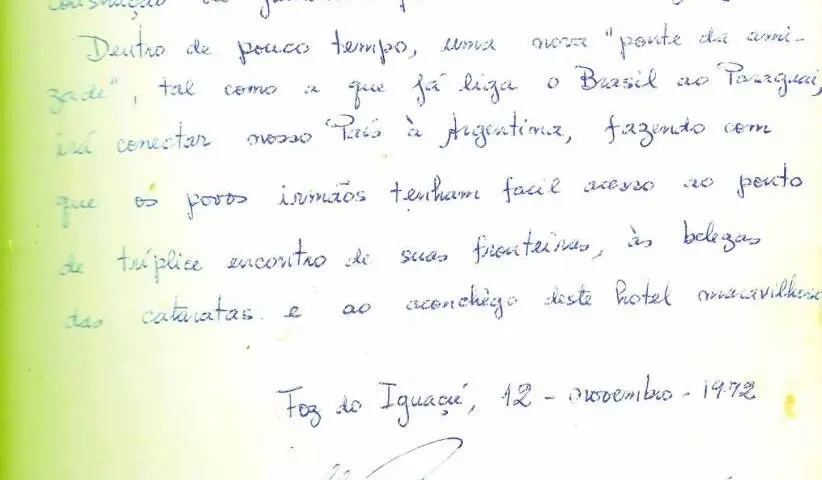 construção de
Dentro de pouco tempo, uma nova "ponte da ami-
zade", tal como a que já liga o Brasil ao Paraguai,
irá conectar nosso País à Argentina, fazendo com
que os povos irmãos tenham facil acesso ao ponto
de tríplice encontro de suas fronteiras, às belezas
das cataratas e ao aconchêgo deste hotel maravilhoso
Foz do Iguaçú, 12 - novembro - 1972